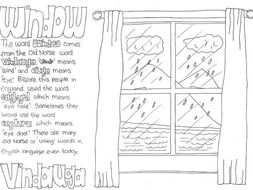 Window
The word Window comes
from the Old Norse word
vindauga. 'Vindr' means
'wind' and auga means
'eye'. Before this people in
England used the word
which means
'eye hole'. Sometimes they
would use the word
which means
'eye door'. There are many
Old Norse or 'Viking' words in
English language, even today.
VindaUga